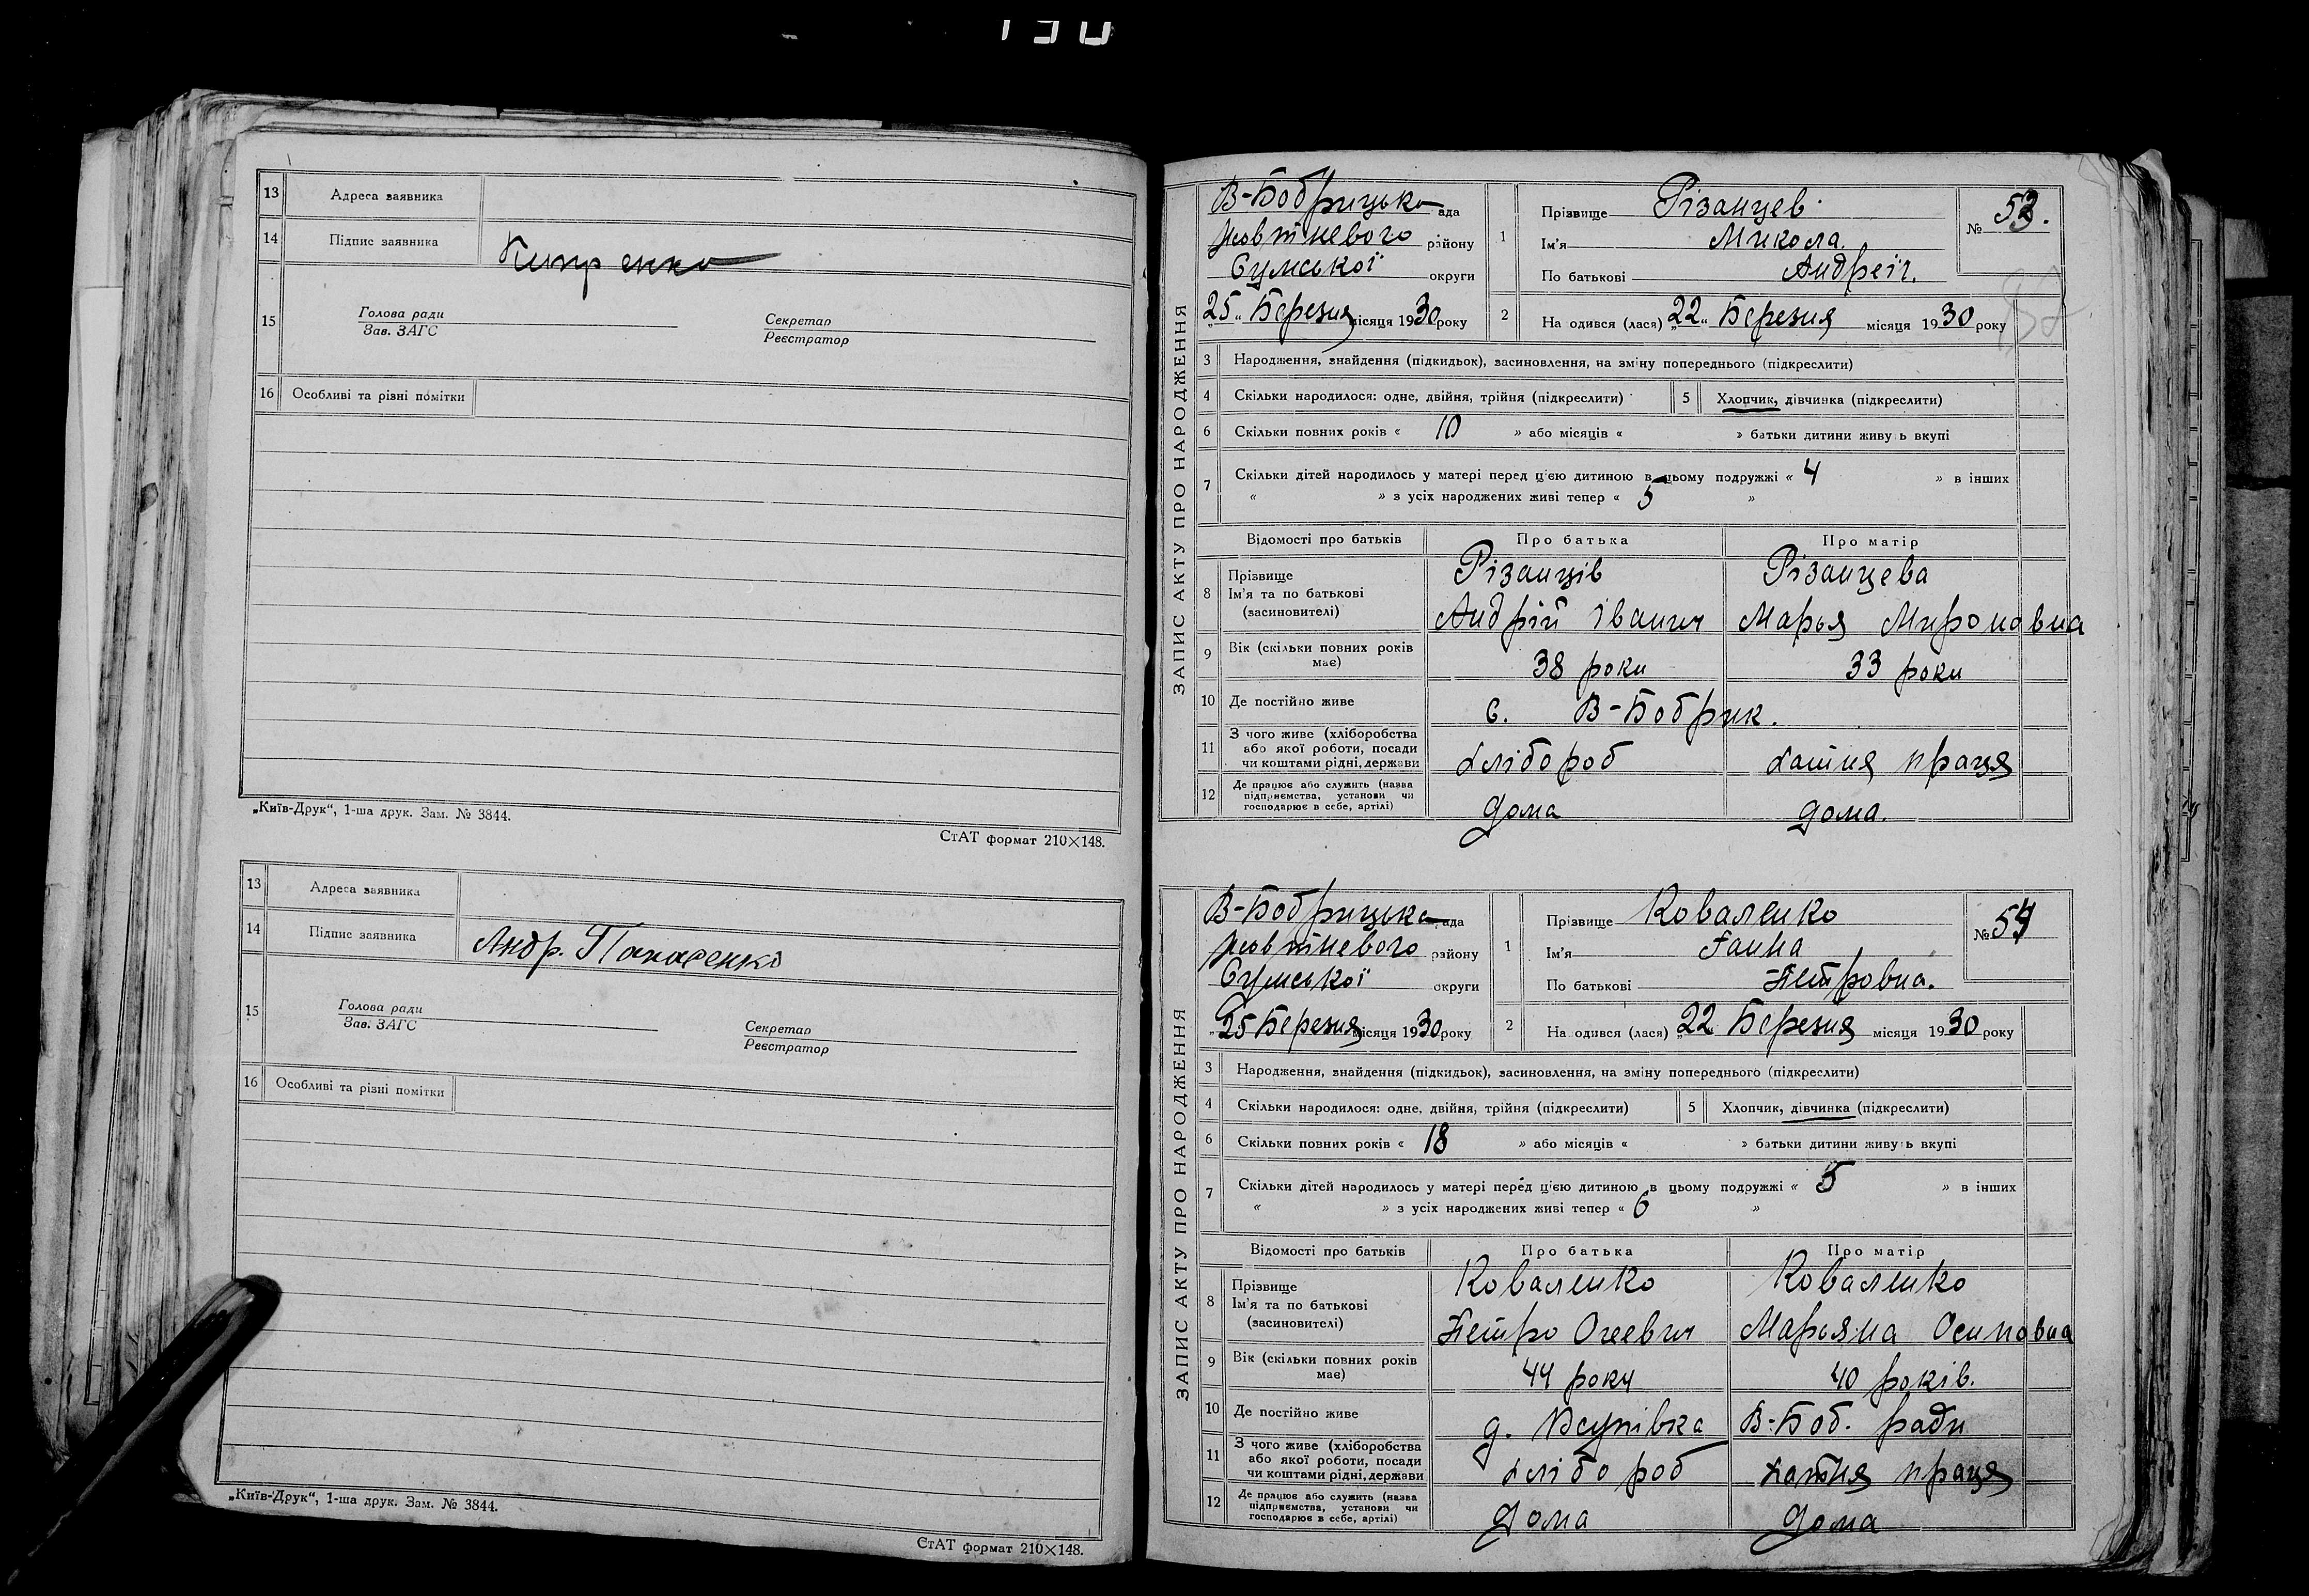 130
13 Адреса заявника
14 Підпис заявника Кипренко
15 Голова ради
Зав. ЗАГС
Секретар
Реєстратор
16 Особливі та різні помітки
„Київ-Друк“, 1-ша друк. Зам. № 3844.
СтАТ формат 210×148.
13 Адреса заявника
14 Підпис заявника Андр. Панасенко
15 Голова ради
Зав. ЗАГС
Секретар
Реєстратор
16 Особливі та різні помітки
„Київ-Друк“, 1-ша друк. Зам. № 3844.
СтАТ формат 210×148.
ЗАПИС АКТУ ПРО НАРОДЖЕННЯ
В-Бобрицька рада
Жовтневого району
Сумської округи
„25„ Березня місяця 1930 року
1 Прізвище Різанцев
Ім'я Микола.
По батькові Андреїч.
№ 53.
2 На одився (лася) „22„ Березня місяця 1930 року
3 Народження, знайдення (підкидьок), засиновлення, на зміну попереднього (підкреслити)
4 Скільки народилося: одне, двійня, трійня (підкреслити)
5 Хлопчик, дівчинка (підкреслити)
6 Скільки повних років « 10 » або місяців « » батьки дитини живуть вкупі
7 Скільки дітей народилось у матері перед ц'єю дитиною в цьому подружжі « 4 » в інших
« » з усіх народжених живі тепер « 5 »
Відомості про батьків Про батька Про матір
8 Прізвище
Ім'я та по батькові
(засиновителі)
Різанців
Андрій Іванич
Різанцева
Марья Мироновна
9 Вік (скільки повних років має) 38 роки 33 роки
10 Де постійно живе с. В-Бобрик.
11 З чого живе (хліборобства
або якої роботи, посади
чи коштами рідні, держави
хлібороб хатня праця
12 Де працює або служить (назва
підприємства, установи чи
господарює в себе, артілі)
дома дома.
ЗАПИС АКТУ ПРО НАРОДЖЕННЯ
В-Бобрицька рада
Жовтневого району
Сумської округи
„25 Березня місяця 1930 року
1 Прізвище Коваленко
Ім'я Ганна
По батькові Петровна.
№ 54
2 На одився (лася) „22 Березня місяця 1930 року
3 Народження, знайдення (підкидьок), засиновлення, на зміну попереднього (підкреслити)
4 Скільки народилося: одне, двійня, трійня (підкреслити)
5 Хлопчик, дівчинка (підкреслити)
6 Скільки повних років « 18 » або місяців « » батьки дитини живуть вкупі
7 Скільки дітей народилось у матері перед ц'єю дитиною в цьому подружжі « 5 » в інших
« » з усіх народжених живі тепер « 6 »
Відомості про батьків Про батька Про матір
8 Прізвище
Ім'я та по батькові
(засиновителі)
Коваленко
Петро
Коваленко
Марьяна Осиповна
9 Вік (скільки повних років має) 44 роки 40 років.
10 Де постійно живе д. В-Боб. ради
11 З чого живе (хліборобства
або якої роботи, посади
чи коштами рідні, держави
хлібороб хатня праця
12 Де працює або служить (назва
підприємства, установи чи
господарює в себе, артілі)
дома дома